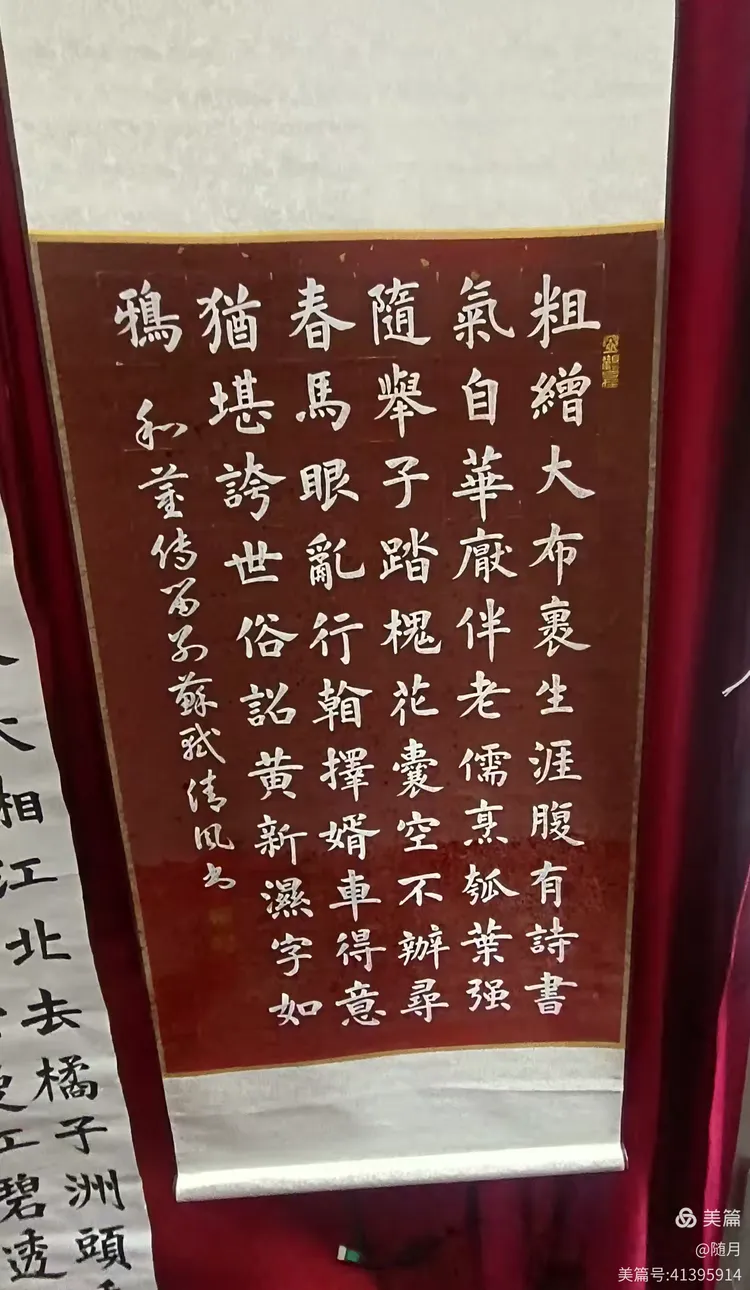 粗繒大布裹生涯腹有詩書
氣自華厭伴老儒烹瓠葉强
隨舉子踏槐花囊空不辦尋
春馬眼亂行翰擇婿車得意
猶堪誇世俗詔黄新濕字如
鴉
和董傳留别蘇軾清風书
江北去橘子洲頭
江碧透
美篇
@随月
美篇号:41395914